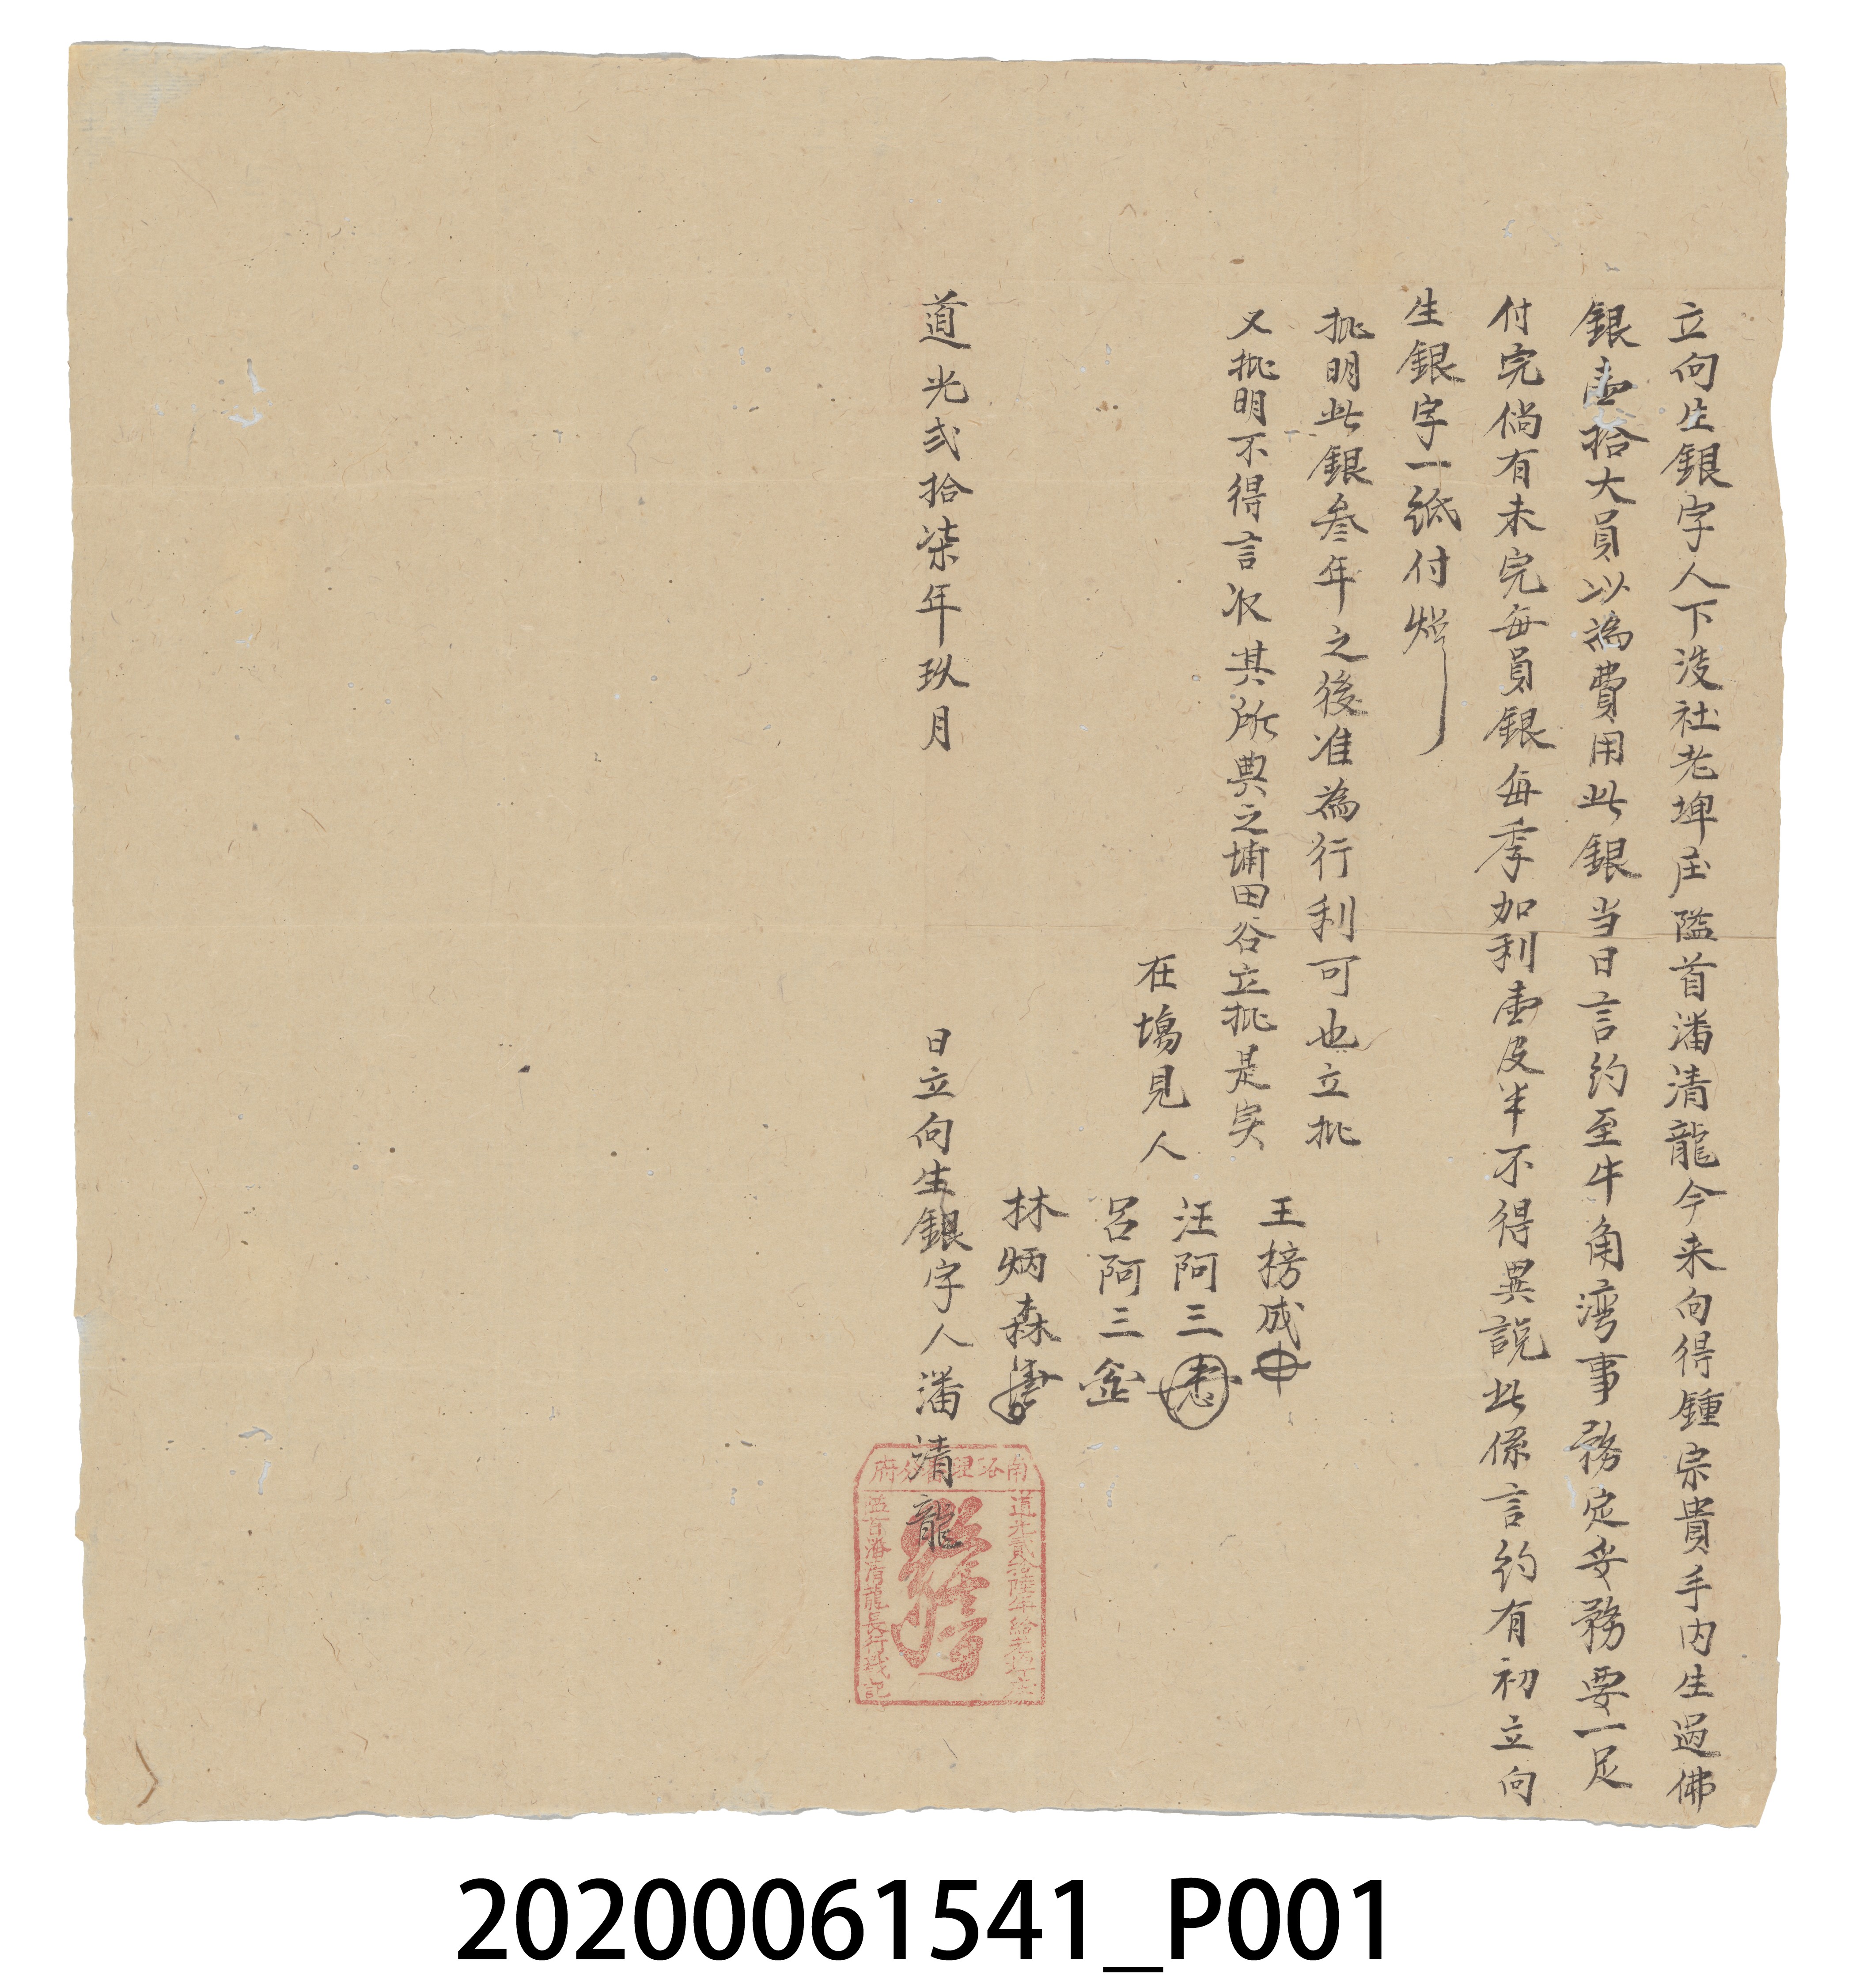 立向生銀字人下淡社老埤庄隘首潘清龍今来向得鍾宗貴手内生過佛
銀壹拾大員以為費用此銀当日言約至牛角湾事務定妥務要一足
付完倘有未完每員銀每季加利壹皮半不得異説此係言約有初立向
生銀字一紙付炤
批明此銀叁年之後准為行利可也立批
又批明不得言收其所典之埔田谷立批是实
王榜成
汪阿三
在塲見人
呂阿三
林炳森
道光弍拾柒年玖月
日立向生銀字人潘清龍
南路理番分府
道光貳拾陸年給老埤庄
隘首潘清龍長行戳記
20200061541_P001